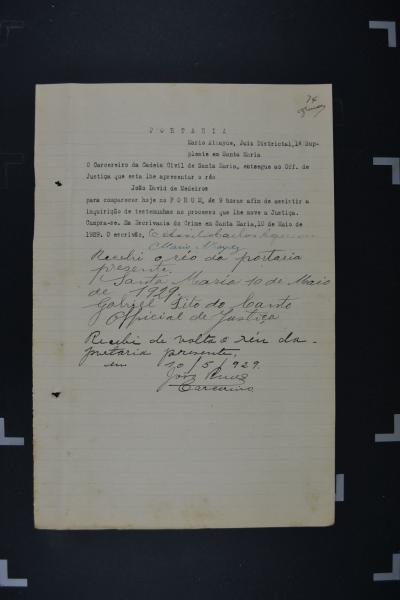 74
P O R T A R I A
Mario Atnayde, Juiz Districtal, 1º Sup-
plente em Santa Maria
O Carcereiro da Cadeia Civil de Santa Maria, entregue ao Off. de
Justiça que esta lhe apresentar o réo
João David de Medeiros
para comparecer hoje no F O R U M, ás 9 horas afim de assistir a
inquirição de testemunhas no processo que lhe move a Justiça.
Cumpra-se. Em Escrivania do Crime em Santa Maria, 10 de Maio de
1929. O escrivão,
Recebi o réo da portaria
presente.
Santa Maria 10 de Maio
de 1929.
Gabriel Tito do Canto
Official de Justiça
Recebi de volta o réu da
portaria presente.
em 10/5/929.
Carcereiro